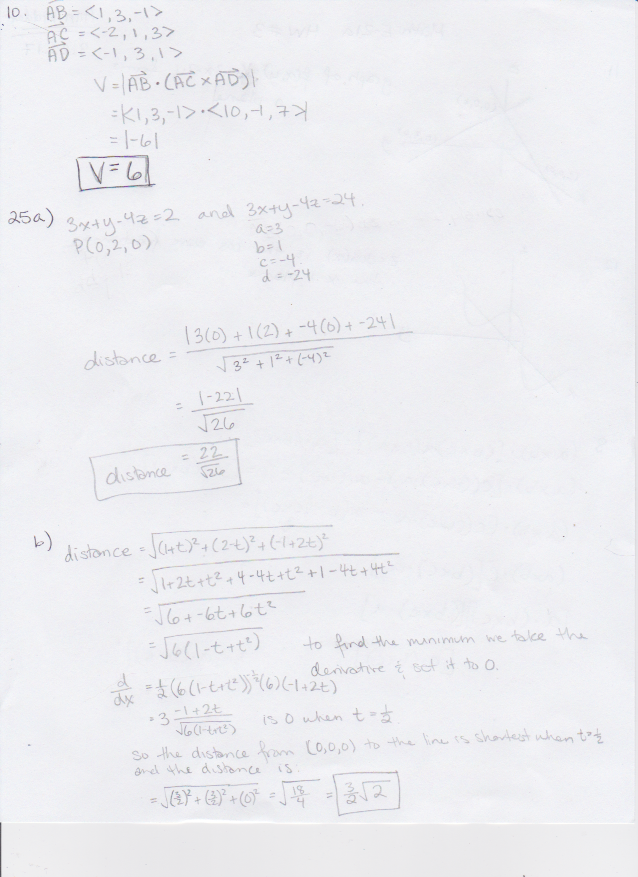 10. AB = <1, 3, -1>
AC = <-2, 1, 3>
AD = <-1, 3, 1>
V = |AB · (AC × AD)|
= |<1, 3, -1> · <10, -1, 7>|
= |-6|
V = 6
25a) 3x+y-4z=2 and 3x+y-4z=24.
P(0,2,0)
a=3
b=1
c=-4
d=-24
distance = |3(0) + 1(2) + -4(0) + -24| / √(3² + 1² + (-4)²)
= |-22| / √26
distance = 22/√26
b) distance = √((1+t)² + (2-t)² + (-1+2t)²)
= √(1+2t+t² + 4-4t+t² + 1-4t+4t²)
= √(6+-6t+6t²)
= √(6(1-t+t²)) to find the minimum we take the
derivative & set it to 0.
d/dx = ½(6(1-t+t²))^½(6)(-1+2t)
= 3 (-1+2t) / √(6(1-t+t²)) is 0 when t=½
So the distance from (0,0,0) to the line is shortest when t=½
and the distance is:
= √((3/2)² + (3/2)² + (0)²) = √(18/4) = 3/2 √2